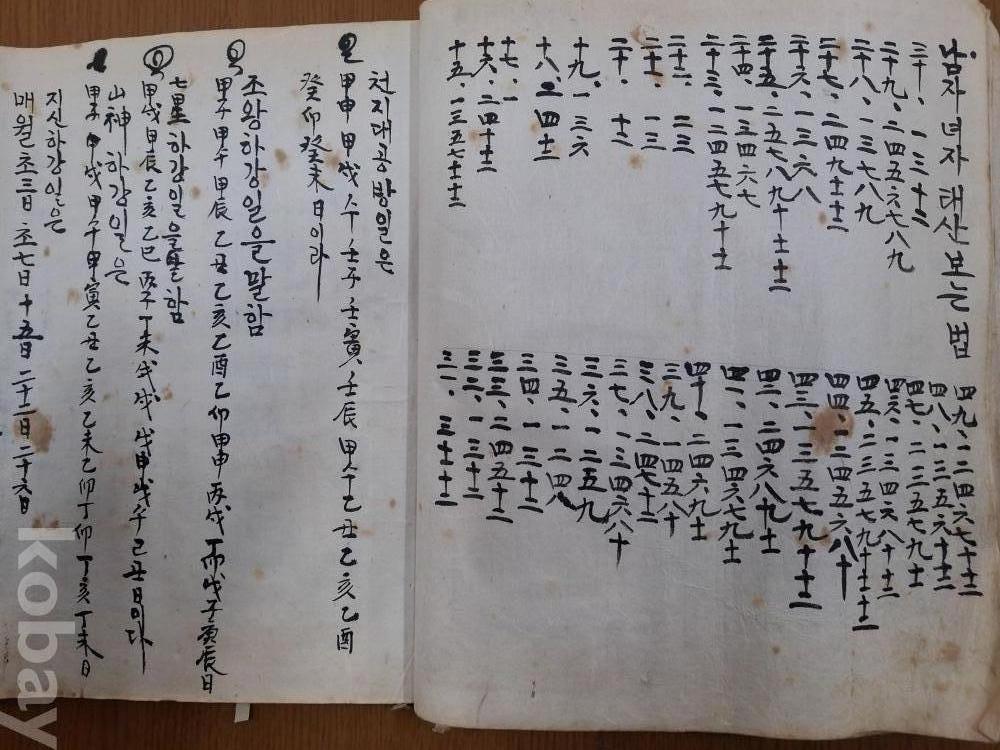 남자 녀자 태산보는법
三十、一三十二
二十九、二四五六七八九
二十八、一三七八九
二十七、二四九十十二
二十六、一三六八
二十五、二五七八九十十一十二
二十四、一三四六七
二十三、一二四五七九十十一
二十二、二三
二十一、一三
二十、十二
十九、一三六
十八、二四十二
十七、一
十六、二四十十二
十五、一三五七十十二
四九、一二四六七十十二
四八、一三五六十十二
四七、二三五七九十一
四六、一三四六八十十二
四五、二三五七九十十一十二
四四、一三四五六八十
四三、一三五七九十十二
四二、二四六八九十一
四一、一三四六七九十一
四十、二四六九十一
三九、一四五八十
三八、二四七十二
三七、一三四六八十
三六、一二五九
三五、一二四八
三四、一三十二
三三、二四五十二
三二、一三十二
三一、三十十二
천지대공방일은
甲申 甲戌 壬子 壬寅 壬辰 甲午 乙丑 乙亥 乙酉
癸卯 癸未日이라
조왕하강일을말함
甲子 甲午 甲辰 乙丑 乙亥 乙酉 乙卯 甲申 丙戌 戊子 庚辰日
七星하강일을말함
甲戌 甲辰 乙亥 乙巳 丁未 戊戌 戊申 戊午 己丑日이다
山神 하강일은
甲子 甲戌 甲午 甲寅 乙丑 乙亥 乙未 乙卯 丁卯 丁亥 丁未日
지신하강일은
매월초三日 초七日 十五日 二十二日 二十六日
kobay